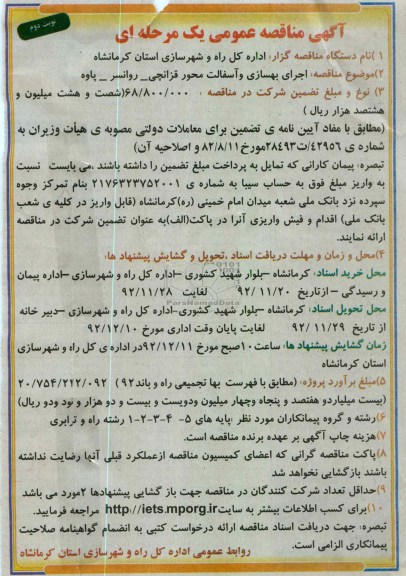 نوبت دوم
آگهی مناقصه عمومی یک مرحله ای
۱ )نام دستگاه مناقصه گزار: اداره کل راه و شهرسازی استان کرمانشاه
۲)موضوع مناقصه: اجرای بهسازی وآسفالت محور قزانچی_ روانسر _ پاوه
۳) نوع و مبلغ تضمین شرکت در مناقصه : ۶۸/۸۰۰/۰۰۰(شصت و هشت میلیون و
هشتصد هزار ریال )
(مطابق با مفاد آیین نامه ی تضمین برای معاملات دولتی مصوبه ی هیأت وزیران به
شماره ی ۴۲۹۵۶/ت۲۸۴۹۳مورخ۸۲/۸/۱۱ و اصلاحیه آن)
تبصره: پیمان کارانی که تمایل به پرداخت مبلغ تضمین را داشته باشند ،می بایست نسبت
به واریز مبلغ فوق به حساب سیبا به شماره ی ۲۱۷۶۳۲۳۷۵۲۰۰۱ بنام تمرکز وجوه
سپرده نزد بانک ملی شعبه میدان امام خمینی (ره)کرمانشاه (قابل واریز در کلیه ی شعب
بانک ملی) اقدام و فیش واریزی آنرا در پاکت(الف)به عنوان تضمین شرکت در مناقصه
ارائه نمایند.
۴)محل و زمان و مهلت دریافت اسناد ،تحویل و گشایش پیشنهاد ها:
محل خرید اسناد: کرمانشاه –بلوار شهید کشوری –اداره کل راه و شهرسازی –اداره پیمان
و رسیدگی – ازتاریخ ۹۲/۱۱/۲۰ لغایت ۹۲/۱۱/۲۸
محل تحویل اسناد: کرمانشاه –بلوار شهید کشوری-اداره کل راه و شهرسازی –دبیر خانه
از تاریخ ۹۲/۱۱/۲۹ لغایت پایان وقت اداری مورخ ۹۲/۱۲/۱۰
زمان گشایش پیشنهاد ها: ساعت۱۰صبح مورخ ۹۲/۱۲/۱۱در اداره ی کل راه و شهرسازی
استان کرمانشاه
۵)مبلغ برآورد پروژه: (مطابق با فهرست بها تجمیعی راه و باند۹۲ ) ۲۰/۷۵۴/۲۱۲/۰۹۲
(بیست میلیاردو هفتصد و پنجاه وچهار میلیون ودویست و بیست و دو هزار و نود ودو ریال)
۶)رشته و گروه پیمانکاران مورد نظر :پایه های ۵- ۴-۳-۲-۱ رشته راه و ترابری
۷)هزینه چاپ آگهی بر عهده برنده مناقصه است.
۸)پاکت مناقصه گرانی که اعضای کمیسیون مناقصه ازعملکرد قبلی آنها رضایت نداشته
باشند بازگشایی نخواهد شد
۹)حداقل تعداد شرکت کنندگان در مناقصه جهت باز گشایی پیشنهادها ۲مورد می باشد
۱۰)برای کسب اطلاعات بیشتر به سایت http://iets.mporg.ir مراجعه فرمایید.
تبصره: جهت دریافت اسناد مناقصه ارائه درخواست کتبی به انضمام گواهینامه صلاحیت
پیمانکاری الزامی است.
روابط عمومی اداره کل راه و شهرسازی استان کرمانشاه
ParsNamadData